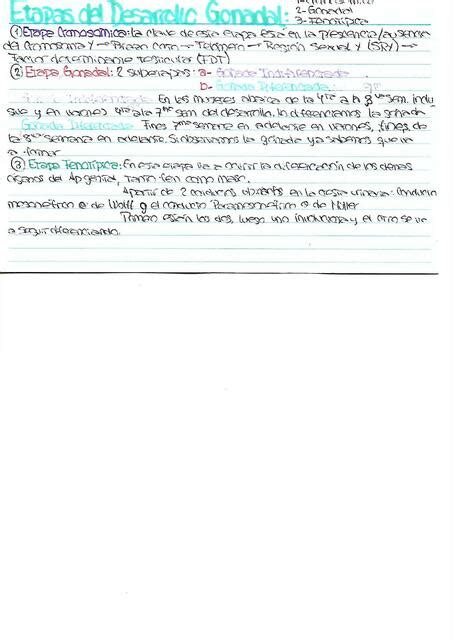 Etapas del Desarrollo Gonadal:
2-Gonadal
3-Fenotípica
① Etapa Cromosómica: la clave de esta etapa está en la presencia/ausencia
del Cromosoma Y → Brazo corto → Telómero → Región Sexual Y (SRY) →
Factor determinante testicular (FDT)
② Etapa Gonadal: 2 subetapas: a- Gónada Indiferenciada
b- Gónada Diferenciada
Indiferenciada: En las mujeres abarca de la 4ta a la 8va sem. inclu
sive y en varones 4ta a la 7ma sem del desarrollo. No diferenciamos la gónada
Gónada Diferenciada: Fines 7ma semana en adelante en varones, fines de
la 8va semana en adelante. Si observamos la gónada ya sabemos que va
a formar
③ Etapa Fenotípica: En esta etapa va a ocurrir la diferenciación de los demás
órganos del Ap genital, tanto fem como masc.
A partir de 2 conductos en la : Conducto
mesonéfrico o de Wolff y el conducto Paramesonéfrico o de Müller
están los dos, luego uno involuciona y el otro se va
a seguir diferenciando.